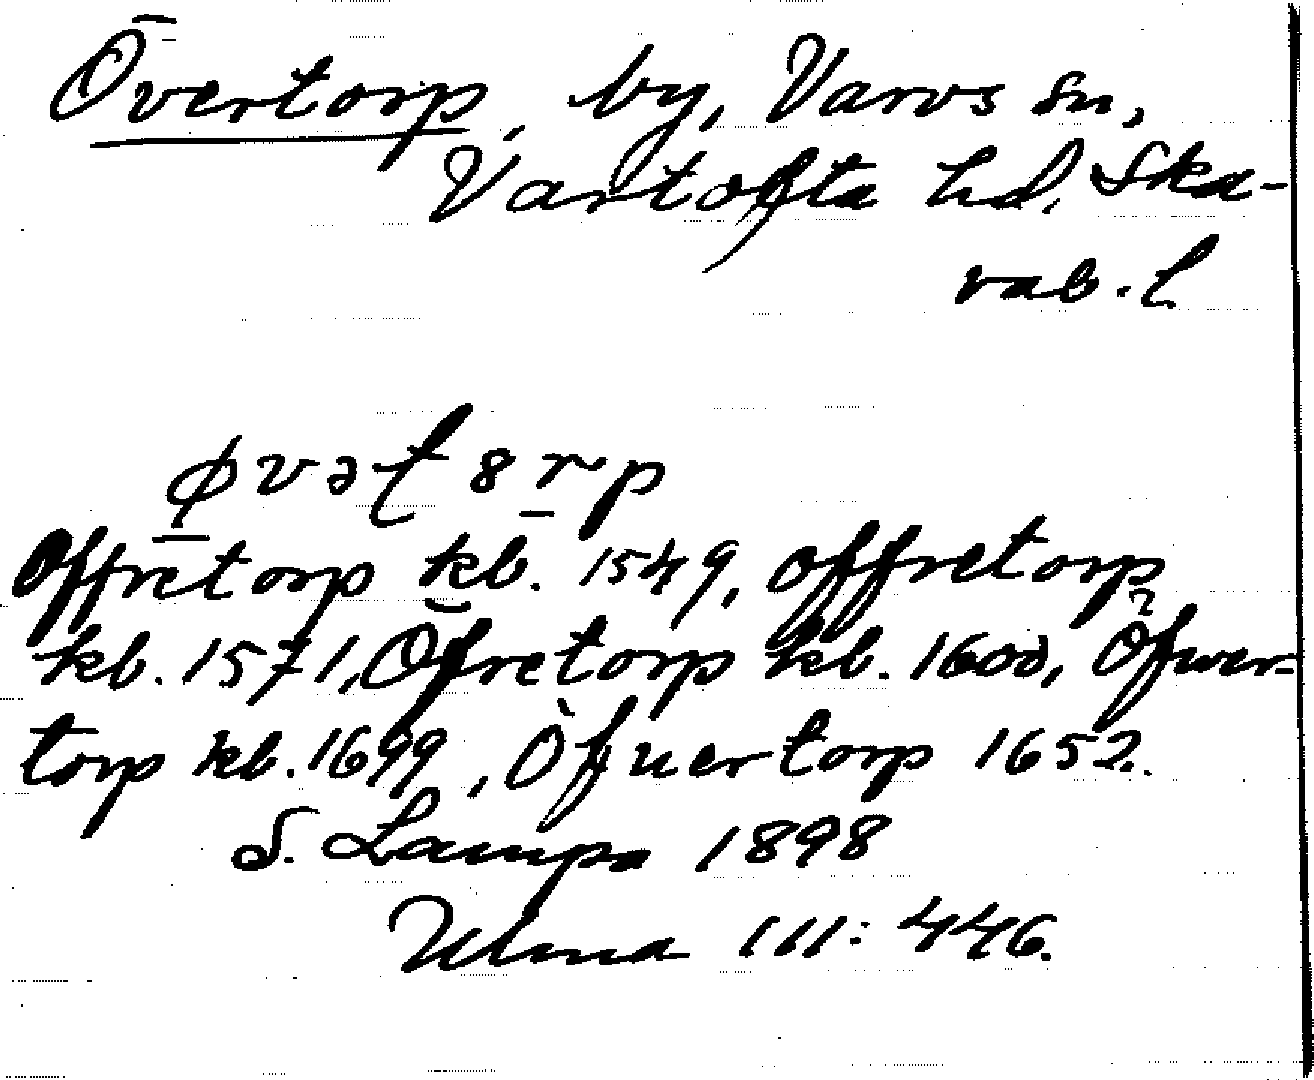 Övertorp, by, Varvs sn,
Vartofta hd, Ska-
rab. l
Offretorp kb. 1549, offretorp
kb. 1571, Öfretorp kb. 1600, Öfwer-
torp kb. 1699, Öfuertorp 1652.
S. Lampa 1898
Ulma 111: 446.